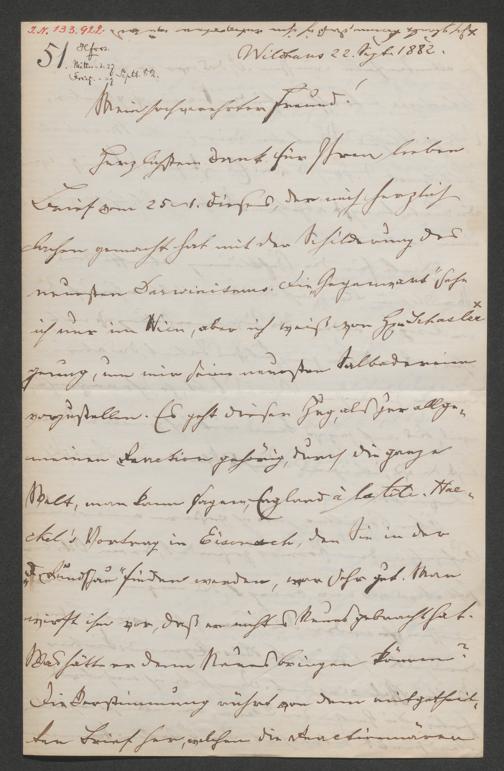 I.N. 133.922.
51.
Wildhaus 22. Sept. 1882.
Mein hochverehrter Freund!
Herzlichsten Dank für Ihren lieben
Brief vom dieses der mich herzlich
lachen gemacht hat mit der Schilderung des
neuesten Darwinismus. Die „Gegenwart" sehe
ich nur in Wien, aber ich weiß von Schasler
genug, um mir seine neuesten Salbadereien
vorzustellen. Es geht dieser Zug, als zur allge-
meinen Reaction gehörig, durch die ganze
Welt, man kann sagen, England à la tête. Hae-
ckel's Vortrag in Eisenach, den Sie in der
„Rundschau" finden werden, war sehr gut. Man
wirft ihm vor, daß er nichts Neues gebracht hat.
Was hätte er denn Neues bringen können?
Die Verstimmung rührt von dem mitgetheil-
ten Brief her, welchen die Reactionären